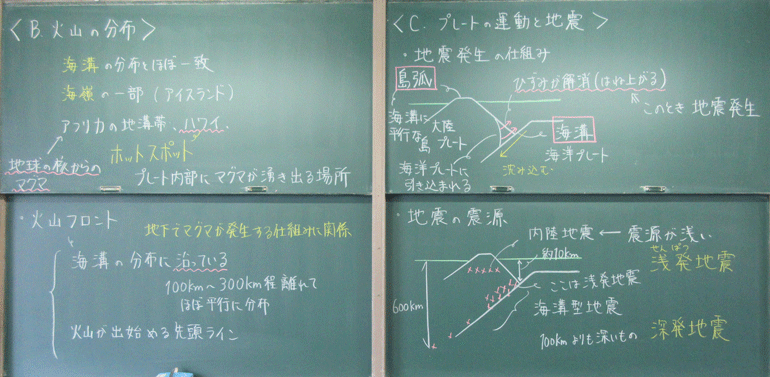 〈B. 火山の分布〉
海溝の分布とほぼ一致
海嶺の一部（アイスランド）
アフリカの地溝帯、ハワイ.
ホットスポット
地球の核からの
マグマ
プレート内部にマグマが湧き出る場所
・火山フロント
地下でマグマが発生する仕組みに関係
海溝の分布に沿っている
100kmへ300km程離れて
ほぼ平行に分布
火山が出始める先頭ライン
〈C. プレートの運動と地震〉
・地震発生の仕組み
島弧
ひずみが解消(はね上がる)
このとき地震発生
海溝に
平行な
島
大陸
プレート
海溝
海洋プレート
海洋プレートに
引き込まれる
沈み込む
・地震の震源
内陸地震 ← 震源が浅い
約10km
せんぱつ
浅発地震
600km
ここは浅発地震
海溝型地震
100kmよりも深いもの
深発地震